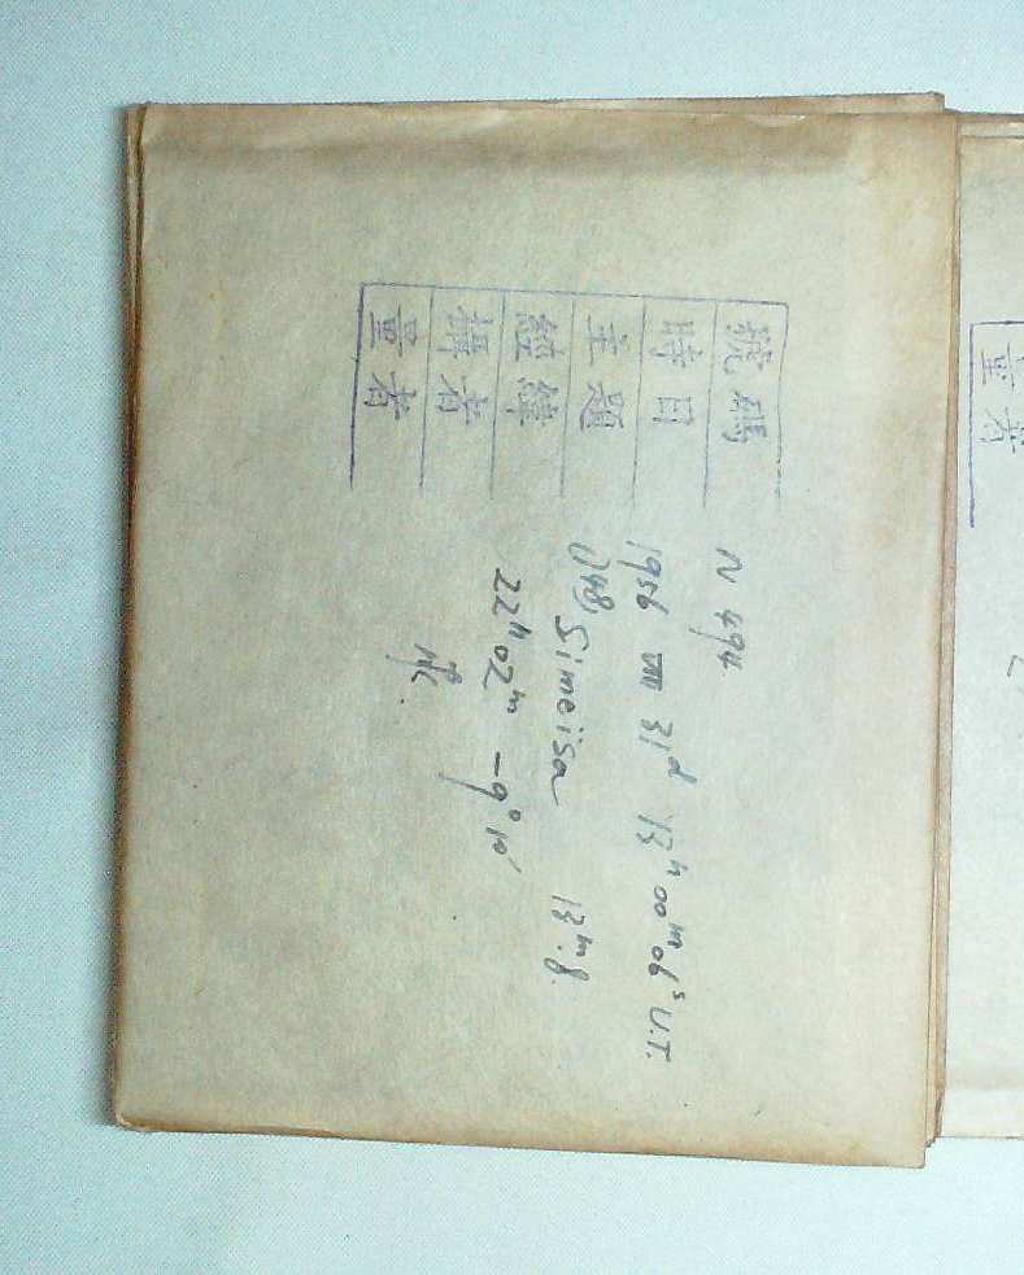 號碼 N 494
時日 1956 VIII 31ᵈ 13ʰ00ᵐ06ˢ U.T.
主題 (748) Simeisa 13ᵐ.8
經緯 22ʰ02ᵐ −9°10′
攝者
量者
量者